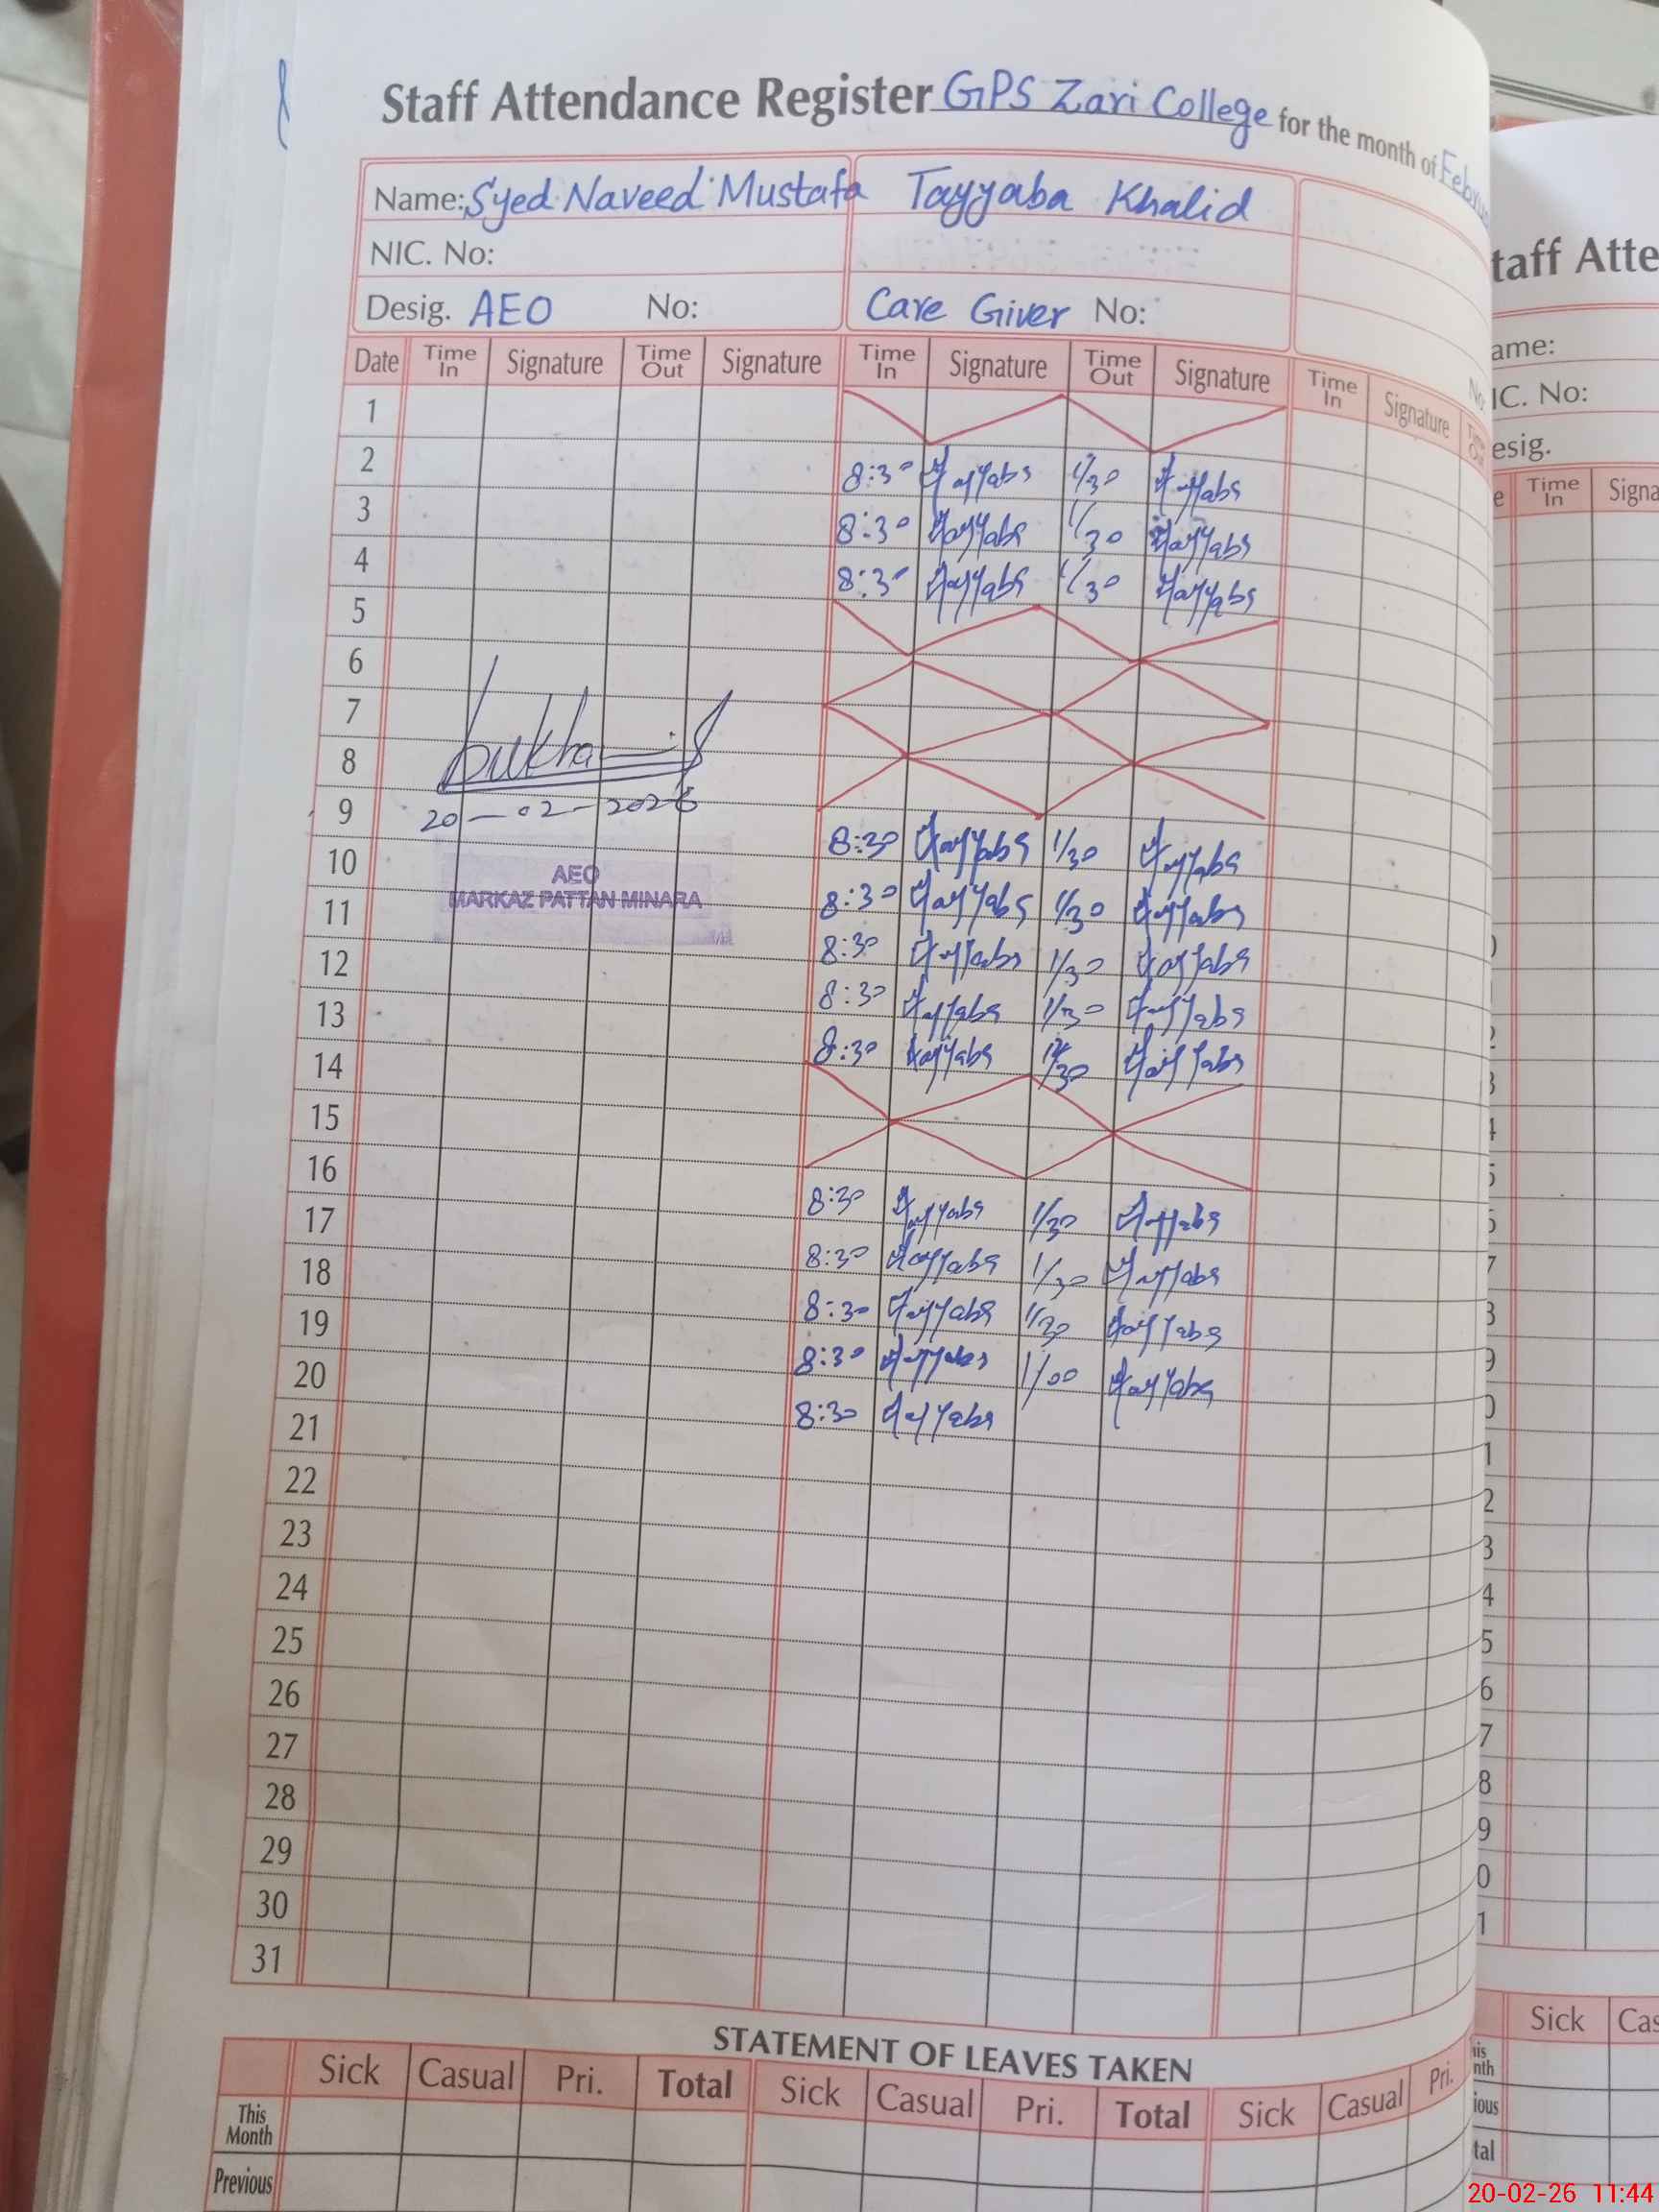 Staff Attendance Register GPS Zari College for the month of
Name: Syed Naveed Mustafa Tayyaba Khalid
NIC. No:
Desig. AEO No: Care Giver No:
Date Time In Signature Time Out Signature Time In Signature Time Out Signature Time In Signature
1
2 8:30 Tayyaba 1/30 Tayyaba
3 8:30 Tayyaba 1/30 Tayyaba
4 8:30 Tayyaba 1/30 Tayyaba
5
6
7
8
9
20-02-2026
10 8:30 Tayyaba 1/30 Tayyaba
AEO
MARKAZ PATTAN MINARA
11 8:30 Tayyaba 1/30 Tayyaba
12 8:30 Tayyaba 1/30 Tayyaba
13 8:30 Tayyaba 1/30 Tayyaba
14 8:30 Tayyaba 30 Tayyaba
15
16
17 8:30 Tayyaba 1/30 Tayyaba
18 8:30 Tayyaba 1/30 Tayyaba
19 8:30 Tayyaba 1/30 Tayyaba
20 8:30 Tayyaba 1/00 Tayyaba
21 8:30 Tayyaba
22
23
24
25
26
27
28
29
30
31
STATEMENT OF LEAVES TAKEN
Sick Casual Pri. Total Sick Casual Pri. Total Sick Casual Pri.
This Month
Previous
taff Atte
ame:
IC. No:
esig.
Time In Signa
Sick Cas
20-02-26 11:44